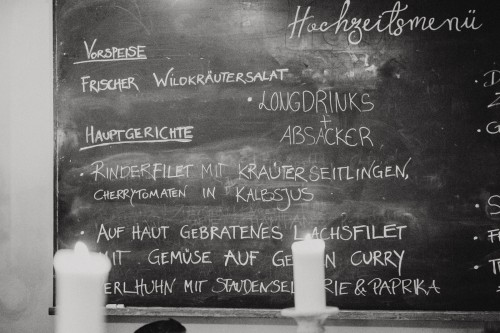 Hochzeitsmenü
Vorspeise
Frischer Wildkräutersalat
• Longdrinks
+
Absacker
Hauptgerichte
• Rinderfilet mit Kräuterseitlingen,
Cherrytomaten in Kalbsjus
• Auf Haut gebratenes Lachsfilet
mit Gemüse auf Curry
erlhuhn mit & Paprika